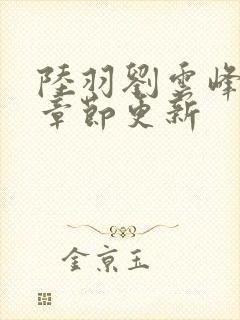 陸羽劉雲峰
章節更新
金京玉